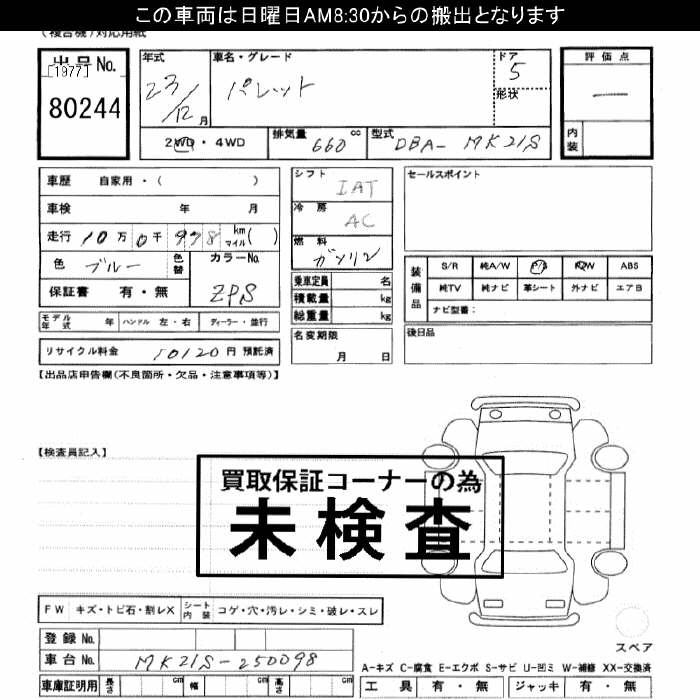 この車両は日曜日AM8:30からの搬出となります
(複合機)対応用紙
出品No.
[1977]
80244
年式
23/12月
車名・グレード
パレット
ドア
5
形状
評価点
—
内装
2WD・4WD
排気量 660 cc
型式 DBA-MK21S
車歴 自家用・( )
車検 年 月
走行 10万0千998 km マイル( )
色 ブルー
色替
カラーNo.
ZPS
保証書 有・無
シフト
IAT
冷房
AC
燃料
ガソリン
乗車定員 名
積載量 kg
総重量 kg
セールスポイント
装備品
S/R 純A/W P/S P/W ABS
純TV 純ナビ 革シート 外ナビ エアB
ナビ型番:
モデル年式 年 ハンドル 左・右 ディーラー・並行
名変期限
月 日
後日品
リサイクル料金 10120円 預託済
【出品店申告欄(不良箇所・欠品・注意事項等)】
【検査員記入】
買取保証コーナーの為
未検査
FW キズ・トビ石・割レX シート内装 コゲ・穴・汚レ・シミ・破レ・スレ
スペア
登録No.
車台No. MK21S-250098
A-キズ C-腐食 E-エクボ S-サビ U-凹ミ W-補修 XX-交換済
車庫証明用 長さ cm 幅 cm 高さ cm
工具 有・無 ジャッキ 有・無